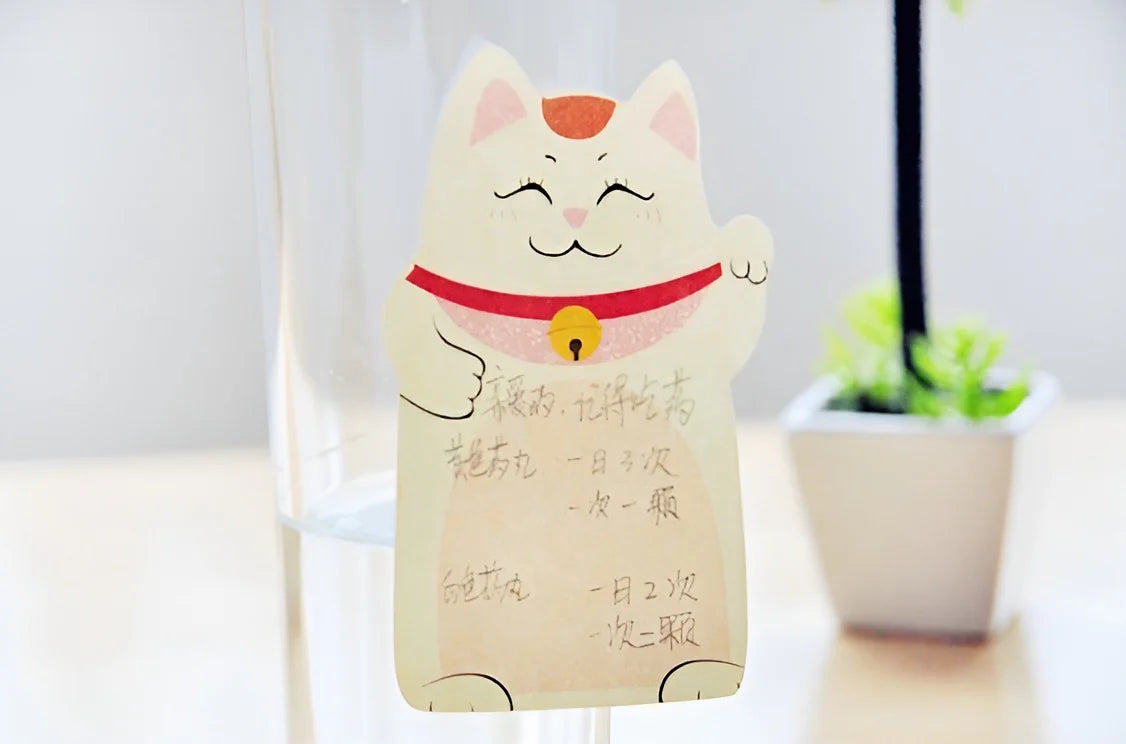 亲爱的，记得吃药
黄色药丸 一日3次
一次一颗
白色药丸 一日2次
一次二颗